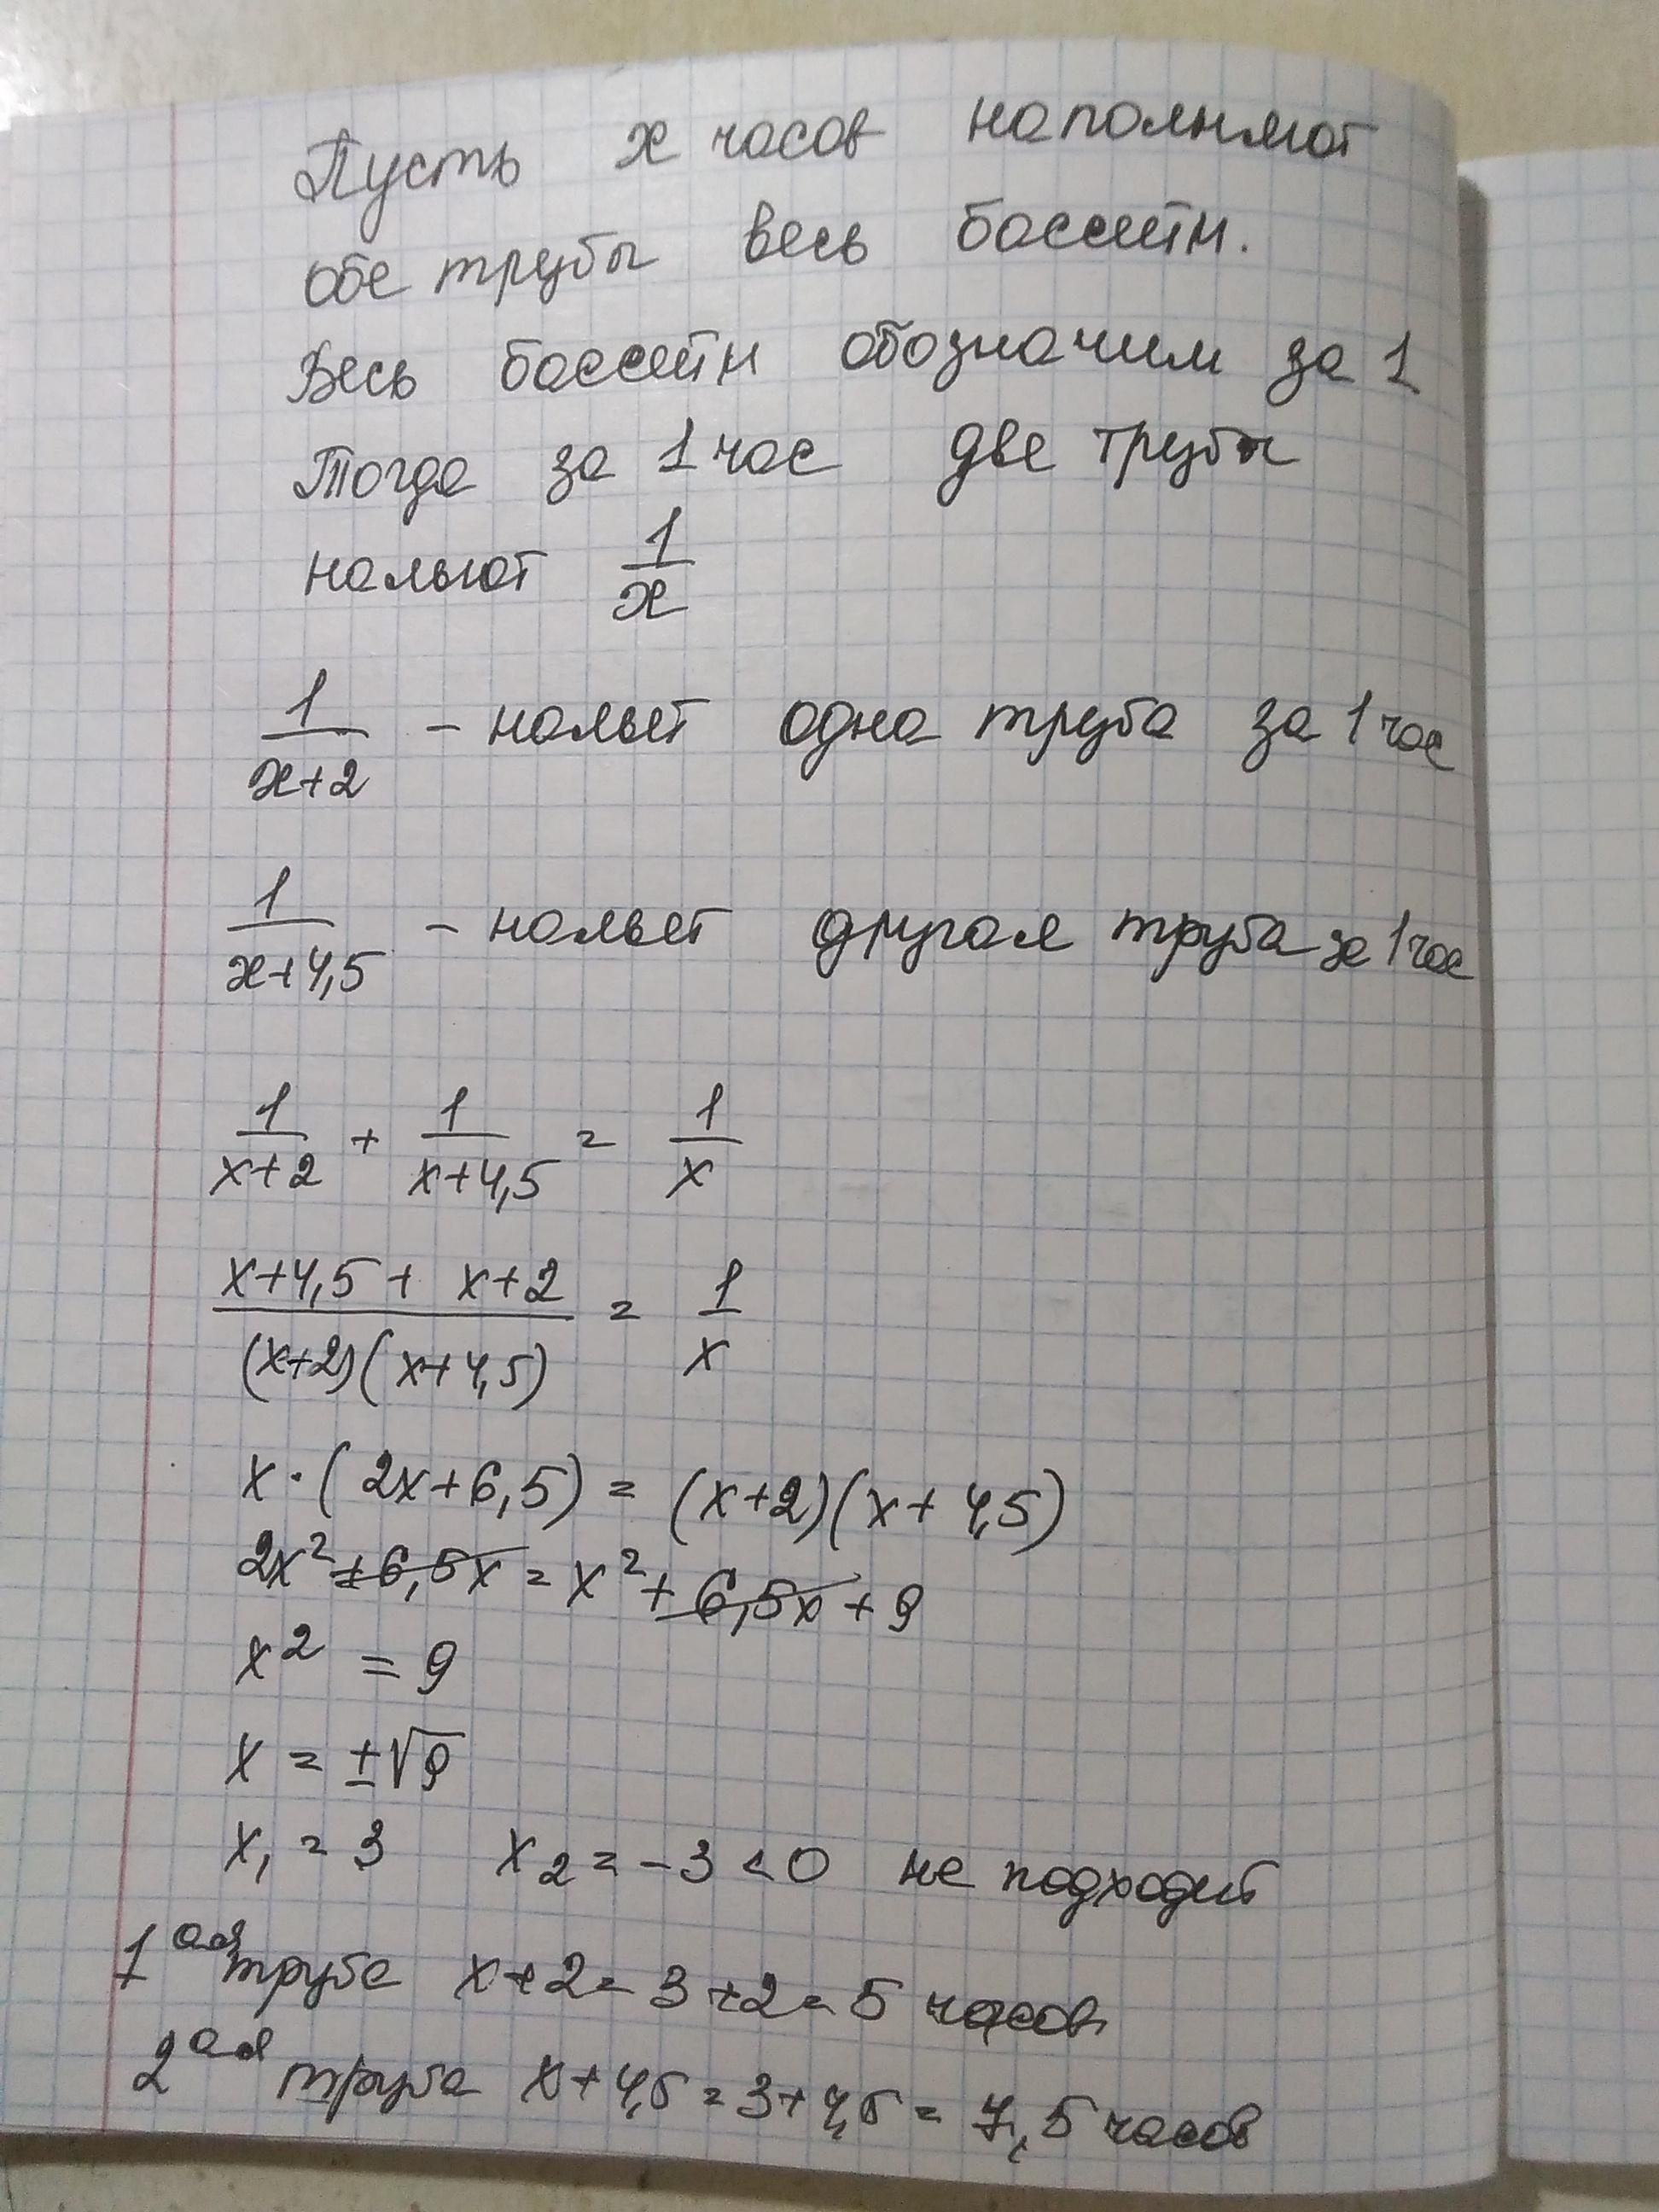 Пусть x часов наполняют
обе трубы весь бассейн.
Весь бассейн обозначим за 1
Тогда за 1 час две трубы
нальют 1/x
1/(x+2) – нальет одна труба за 1 час
1/(x+4,5) – нальет другая труба за 1 час
1/(x+2) + 1/(x+4,5) = 1/x
(x+4,5 + x+2)/((x+2)(x+4,5)) = 1/x
x·(2x+6,5) = (x+2)(x+4,5)
2x²+6,5x = x²+6,5x+9
x² = 9
x = ±√9
x₁ = 3 x₂ = -3 < 0 не подходит
1ая труба x+2 = 3+2 = 5 часов
2ая труба x+4,5 = 3+4,5 = 7,5 часов